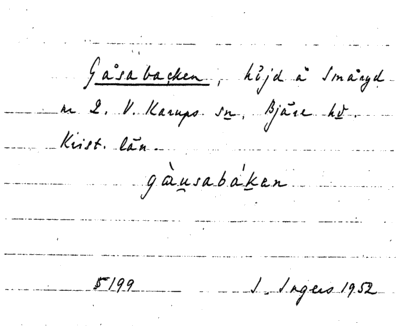 Gåsabacken, höjd å Småryd
nr 2. V. Karups sn. Bjäre hd.
Krist. län.
gàusabákan
5199 I. Ingers 1952